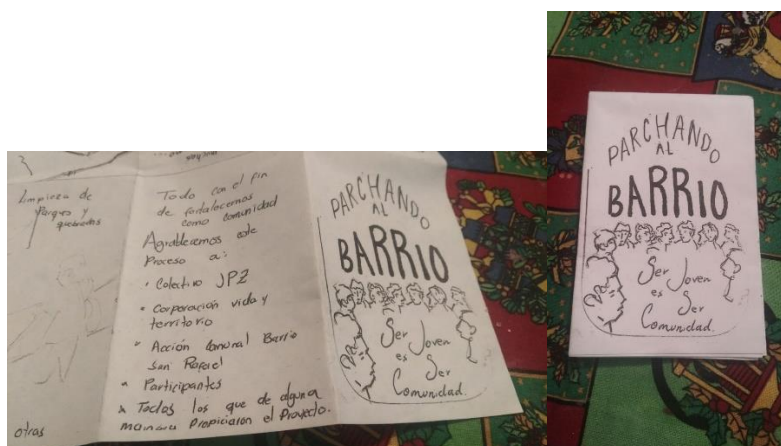 Limpieza de
Parques y
quebradas
otras
Todo con el fin
de fortalecernos
como comunidad
Agradecemos este
Proceso a:
• Colectivo JPZ
• Corporación vida y
territorio
• Acción Comunal Barrio
San Rafael
• Participantes
• Todos los que de alguna
manera propiciaron el Proyecto.
PARCHANDO
AL
BARRIO
Ser Joven
es Ser
Comunidad.
PARCHANDO
AL
BARRIO
Ser Joven
es Ser
Comunidad.